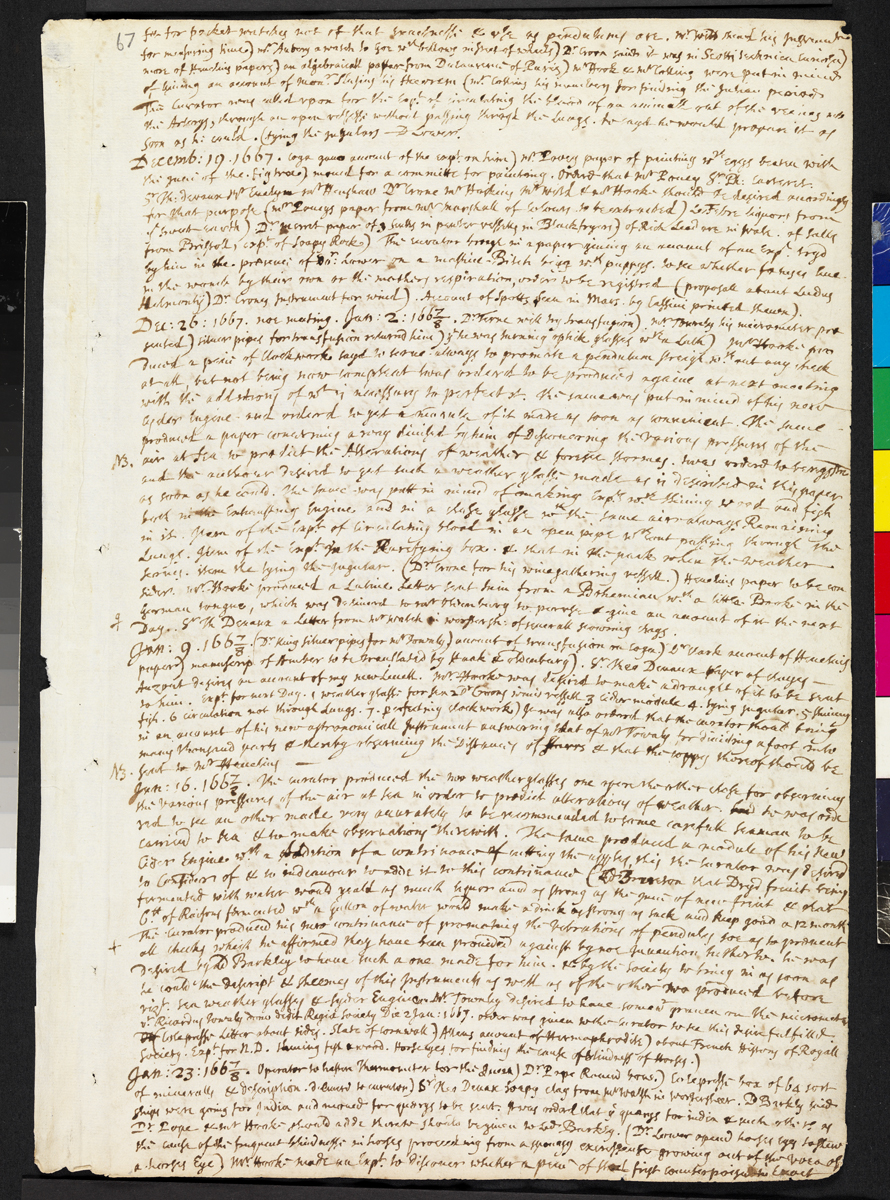 67
for for pocket watches not of that exactnesse & use as pendulums are. mr. Wild read his Instrument
for measuring time) mr Aubery a watch to goe wth bellows instead of wheels) Dr Croon said it was in Scotti technica curiosa)
more of Heuelius papers) an algebraicall paper from Dulaurens of Paris) mr Hook & mr Collins were put in mind
of giving an account of monr Slusius his theorem (mr. Collins his manner for finding the Julian period
The Curator was called upon for the Expt of circulating the blood of an animall out of the veines into
the Arterys through an open vessell without passing through the Lungs. he sayd he would prepare it as
soon as he could. (tying the jugulars - D Lower.
Decemb: 19. 1667. Coga gave account of the expt. on him) mr. Poveys paper of painting wth eggs beaten with
the juice of the figtree) moved for a committe for painting. Orderd that mr. Povey Sr. Ph: Carteret
Sr. Th: devaux Mr Euelyn mr Henshaw Dr Crone mr Hoskins mr Wild & mr Hooke should be desired accordingly
for that purpose (mr. Poveys paper from mr. Marshall of colours to be extracted)
from Bristoll, expt of Soapy Rocke) The curator brought in a paper giving an account of an Expt tryd
by him in the presence of Dr: Lower on a mastive Bitch bigg wth puppys. to see whether fœtuses liue
in the womb by their own or the mothers respiration, orderd to be registred (proposall about Ludus
Helmontij) Dr Crones Instrument for wind). Account of Spotts seen in Mars. by Cassini printed shewn).
Dec: 26: 1667. noe meeting. Jan: 2: 1667/8. mr. Townly his micrometer pre
sented) silver pipes for transfusion returnd him) he was turning optick glasses wth a Lath) mr Hooke pro
duced a peice of clockwork sayd to serve always to promote a pendulum streight without any check
at all, but not being now compleat twas ordered to be produced againe at next meeting
with the additions of wt is necessary to perfect it. The same was put in mind of his new
Cyder Engine. and orderd to get a module of it made as soon as convenient. The same
produced a paper concerning a way devised by him of Discovering the various pressures of the
NB. air at sea to predict the Alterations of weather & foresee stormes. twas orderd to be registred
and the authour desired to get such a weather glasse made as is described in this paper
as soon as he could. The same was putt in mind of making Expts wth shining wood and fish
both in the Exhausting Engine and in a close glasse wth the same air always Remaining
in it. Item of the Expt of circulating blood in an open pipe wthout passing through the
Lungs. Item of the Expt in the Rarifying box. & that in the neck when the weather
serues. item the tying the jugular. (Dr. Crone for his winegathering vessell.) Heuelius paper to be con
siderd. mr. Hooke produced a Latine Letter sent him from a Bohemian wth a little Booke in the
german tongue, which was deliverd to mr Oldenburg to peruse & give an account of it the next
Day. Sr Th Devaux a Letter from mr Walsh in worstersh. of severall scowring clays.
Jan: 9. 1667/8 (Dr King silver pipes for mr Townly) account of transfusion on Coga) account of Hevelius
paper) manuscrip of Amber to be translated by Haak & Oldenburg). Sr. Theo Devaux paper of clayes -
Auzout desires an account of my new Levell. mr Hooke was desired to make a draught of it to be sent
to him. Expts for next Day. 1 weather glasse for sea 2 Dr Croons wind vessell 3 Cider module 4. tying jugular. 5 shining
fish. 6 circulation not through Lungs. 7. perfecting clockwork) It was also orderd that the curator should bring
in an account of his new astronomicall Instrument answering that of mr Townly for dividing a foot into
many thousand parts & thereby observing the Distances of starrs & that the coppy thereof should be
NB. sent to mr Heuelius —
Jan: 16. 1667/8. The curator produced the two weatherglasses one open the other close for observing
the various pressures of the air at sea in order to predict alterations of weather. he was orde
red to see an other made very accurately to be recommended to some carefull seaman to be
carried to sea & to make observations therewith. The same produced a module of his new
Cider Engine wth a addition of a contrivance of cutting the apples, this the curator was desired
to Consider of & to indeauour to adde it to this contrivance ( that Dryd fruit being
fermented with water would yeald as much liquor and as strong as the juice of new fruit & that
6lb. of Raisons fermented with a gallon of water would make a drink as strong as sack and keep good a 12 month
The curator produced his new contrivance of promoting the vibrations of pendules soe as to prevent
+ all checks which he affirmed they have been provided against by noe invention hitherto. he was
desired by Ld Barkley to have such a one made for him. & by the Society to bring in as soon as
he could the descript & sheemes of this Instrument as well as of the other two produced before
vizt. sea weather glasses & Cyder Engine. Mr. Townly desired to have somewt graven on the micrometer
vt. Ricardus Townly dono dedit Regiæ Society Die 2 Jan: 1667. order was given to the curator to see this desire fulfilled.
Colepresse Letter about tides. Slate of cornwall) Allens account of Hermaphrodite) about French History of Royall
Society. Expts for N.D. shining fish & wood. Horse eyes for finding the cause of blindness of Horses.)
Jan: 23: 1667/8. Operator to hasten Thermometer for the Queen) Dr. Pope Round bows.) Colepresse box of 64 sort
of mineralls & description. deliverd to curator) Sr Theo Devaux soapy clay from mr Walsh in worstersheer. Ld Barkly said
ships were going for India and moved for querys to be sent. It was orderd that ye querys for india & such others as
Dr. Pope & mr Hooke should adde thereto should be given to Ld: Barkley. (Dr. Lower opend horses eyes to shew
the cause of the frequent blindnesse in horses proceeding from a spongy excrescence growing out of the uvea of
a horses Eye) Mr. Hooke made an Expt. to discover whether a piece of steel first counterpoised in Exact